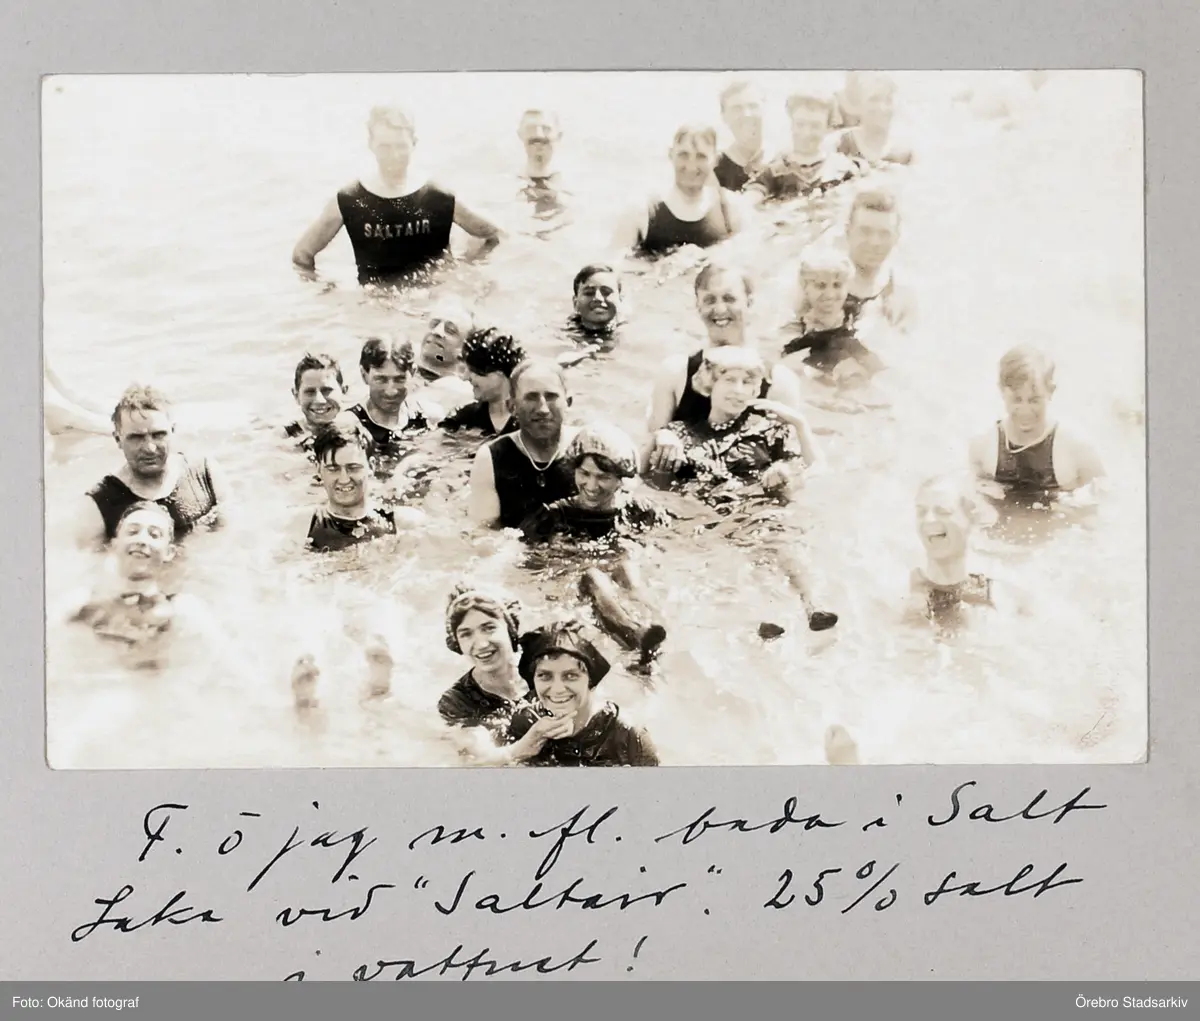 SALTAIR
F. o jag m. fl. bada i Salt
Lake vid "Saltair". 25% salt
i vattnet!
Foto: Okänd fotograf
Örebro Stadsarkiv